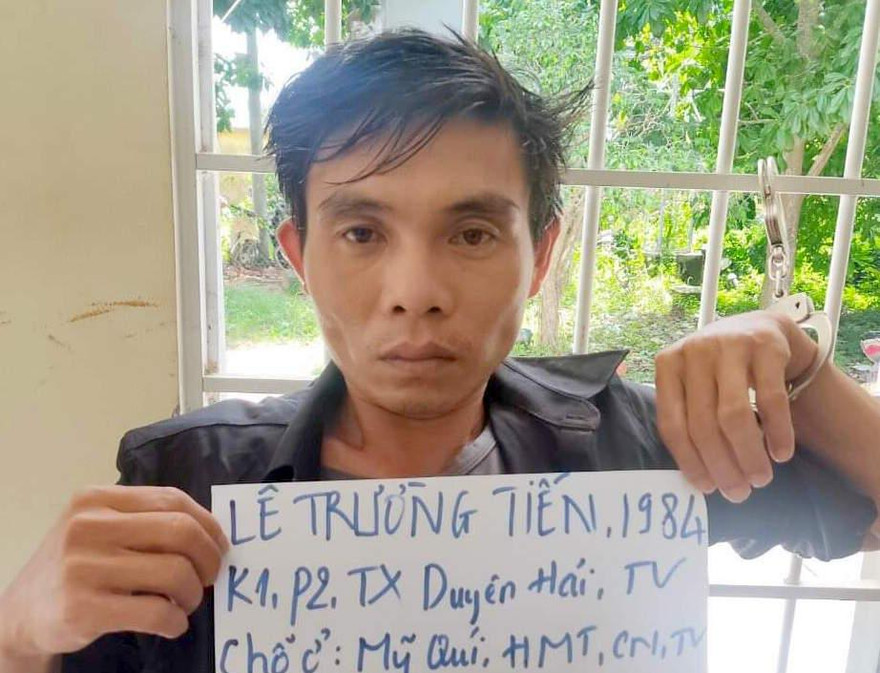 LÊ TRƯỜNG TIẾN, 1984
K1, P2, TX Duyên Hải, TV
Chỗ ở: Mỹ Quí, HMT, CN, TV